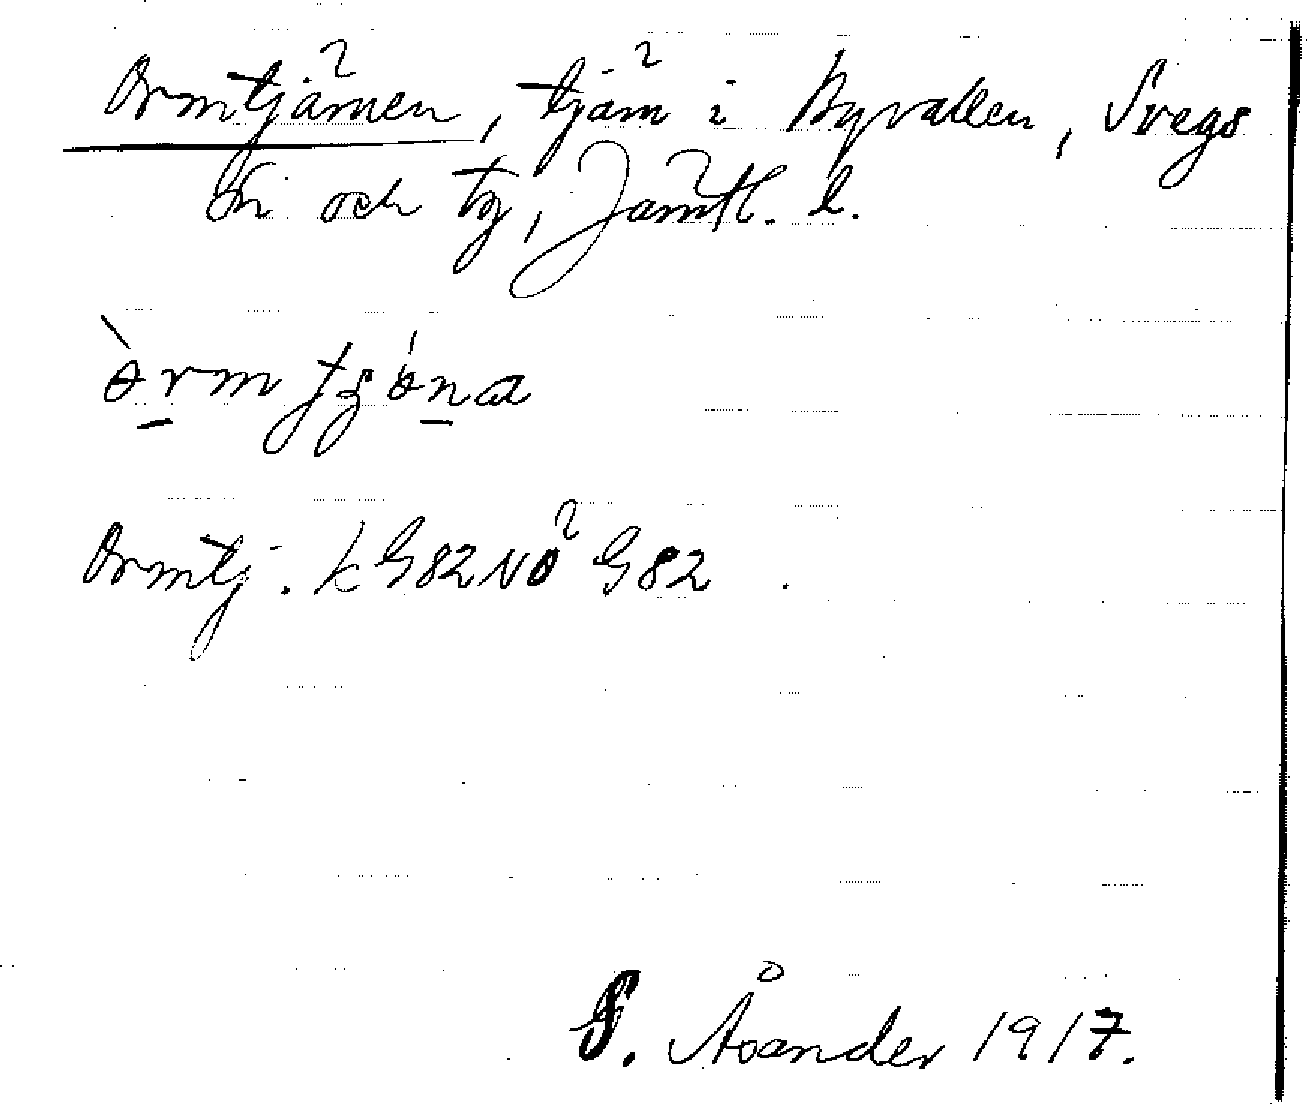 Ormtjärnen, tjärn i Byvallen, Svegs
sn och tg, Jämtl. l.
Ormtj. k G82 NO G82
S. Åsander 1917.